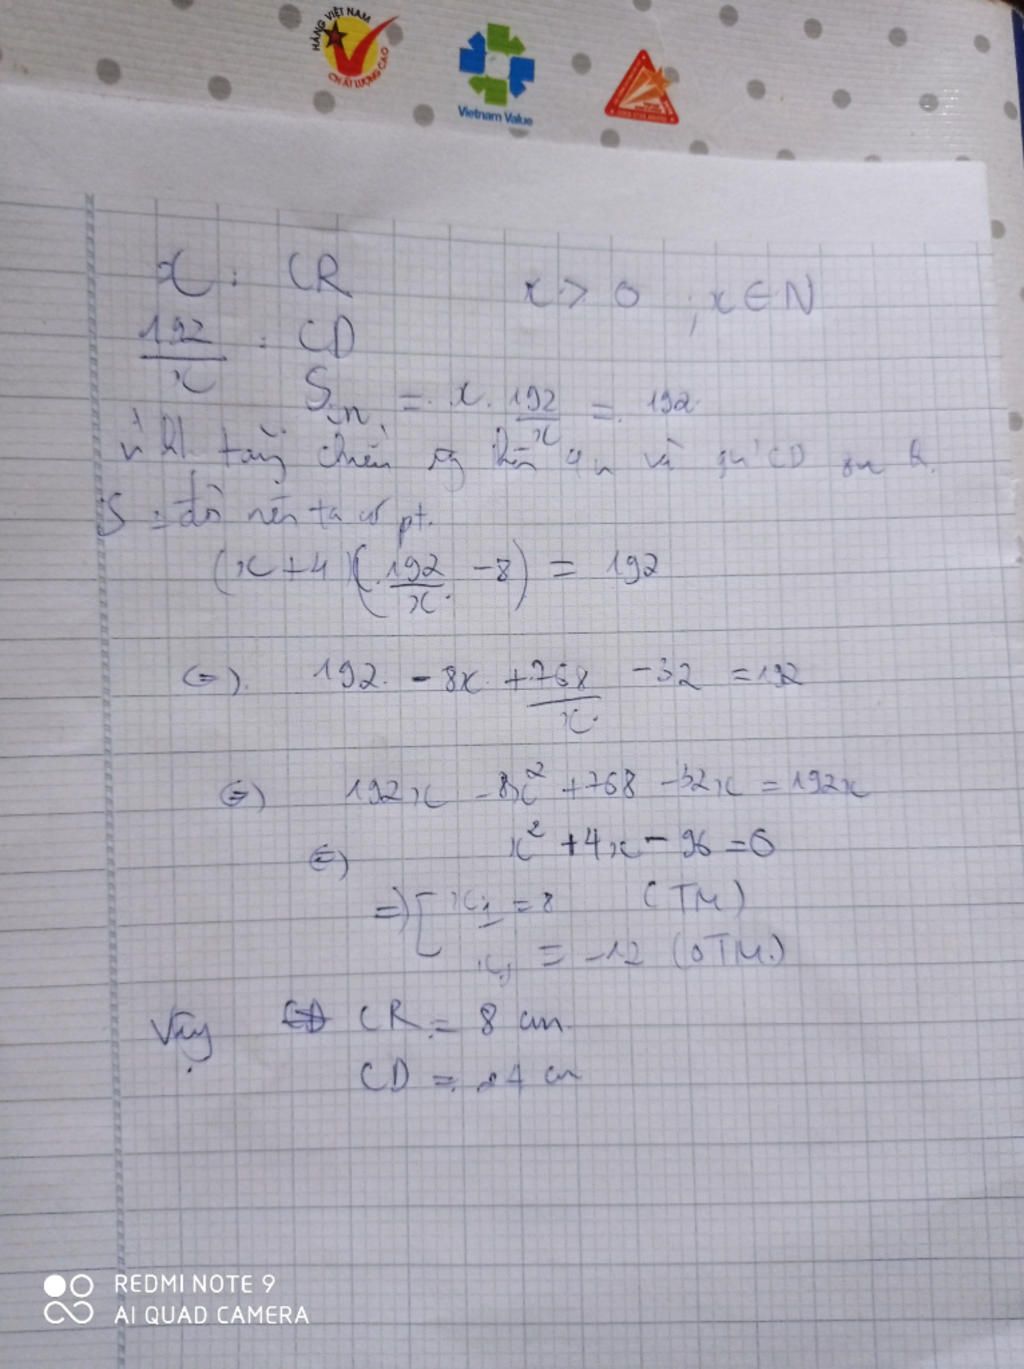 HÀNG VIỆT NAM
CHẤT LƯỢNG CAO
Vietnam Value
x : CR x > 0 ; x ∈ N
192/x : CD
S = x . 192/x = 192
tăng chiều và CD
S đổi nên ta có pt.
(x + 4)(192/x - 8) = 192
<=> 192 - 8x + 768/x - 32 = 192
<=> 192x - 8x² + 768 - 32x = 192x
<=> x² + 4x - 96 = 0
=> [ x₁ = 8 (TM)
x₂ = -12 (0TM)
Vậy CR = 8 cm
CD = 24 cm
REDMI NOTE 9
AI QUAD CAMERA